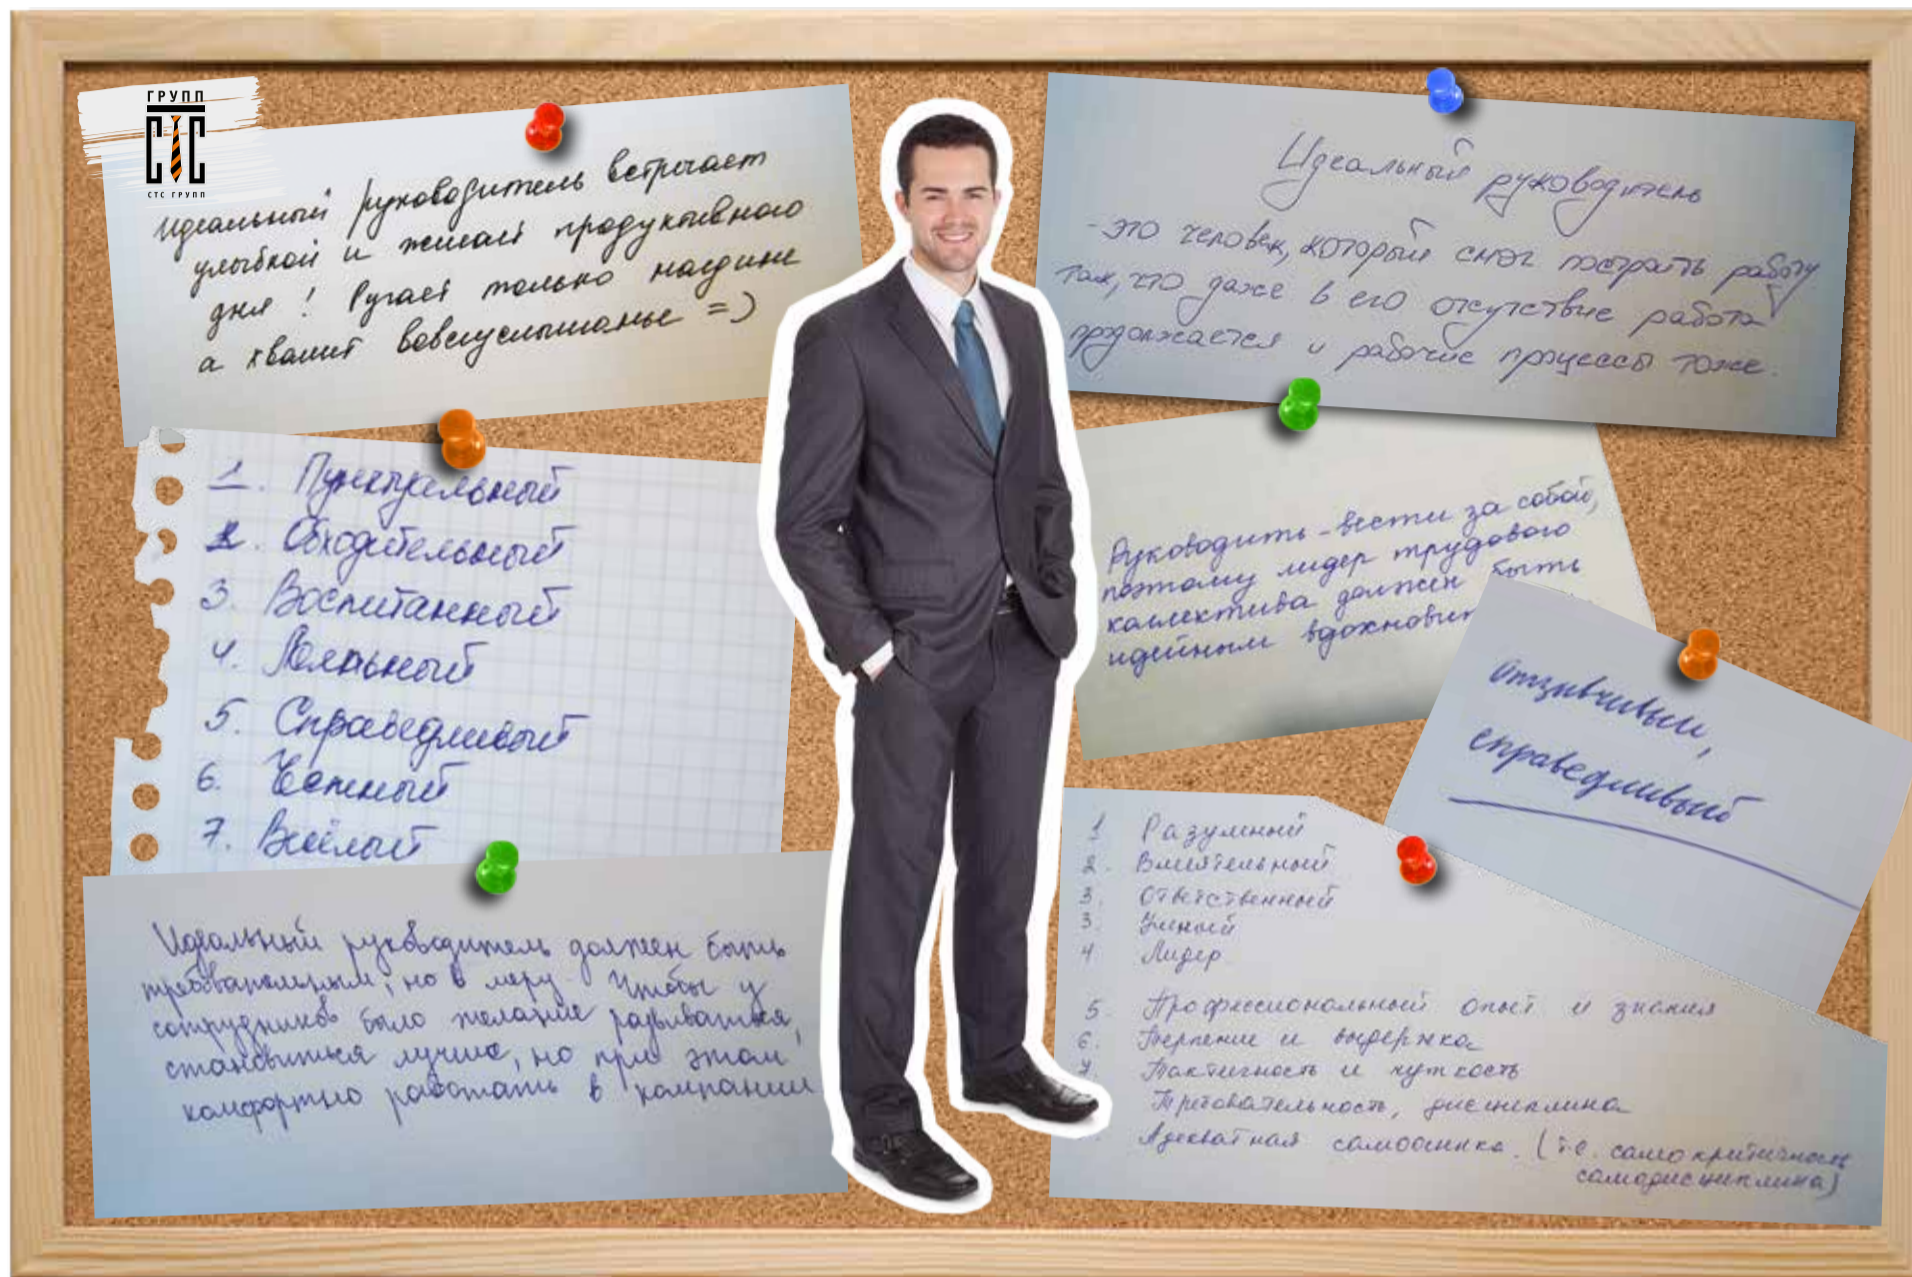 ГРУПП
СТС
СТС ГРУПП
идеальный руководитель встречает
улыбкой и желает продуктивного
дня ! Ругает только наедине
а хвалит вовсеуслышанье =)
1. Пунктуальный
2. Обходительный
3. Воспитанный
4. Лояльный
5. Справедливый
6. Честный
7. Весёлый
Идеальный руководитель должен быть
требовательным, но в меру. Чтобы у
сотрудников было желание развиваться,
становиться лучше, но при этом
комфортно работать в компании
Идеальный руководитель
- это человек, который смог построить работу
так, что даже в его отсутствие работа
продолжается и рабочие процессы тоже.
Руководить - вести за собой,
поэтому лидер трудового
коллектива должен быть
идейным вдохновит
отзывчивый,
справедливый
1 Разумный
2. Влиятельный
3. Ответственный
3. Умный
4 Лидер
5. Профессиональный опыт и знания
6. Терпение и выдержка
7. Тактичность и чуткость
Требовательность, дисциплина
Адекватная самооценка. (т.е. самокритичность
самодисциплина)